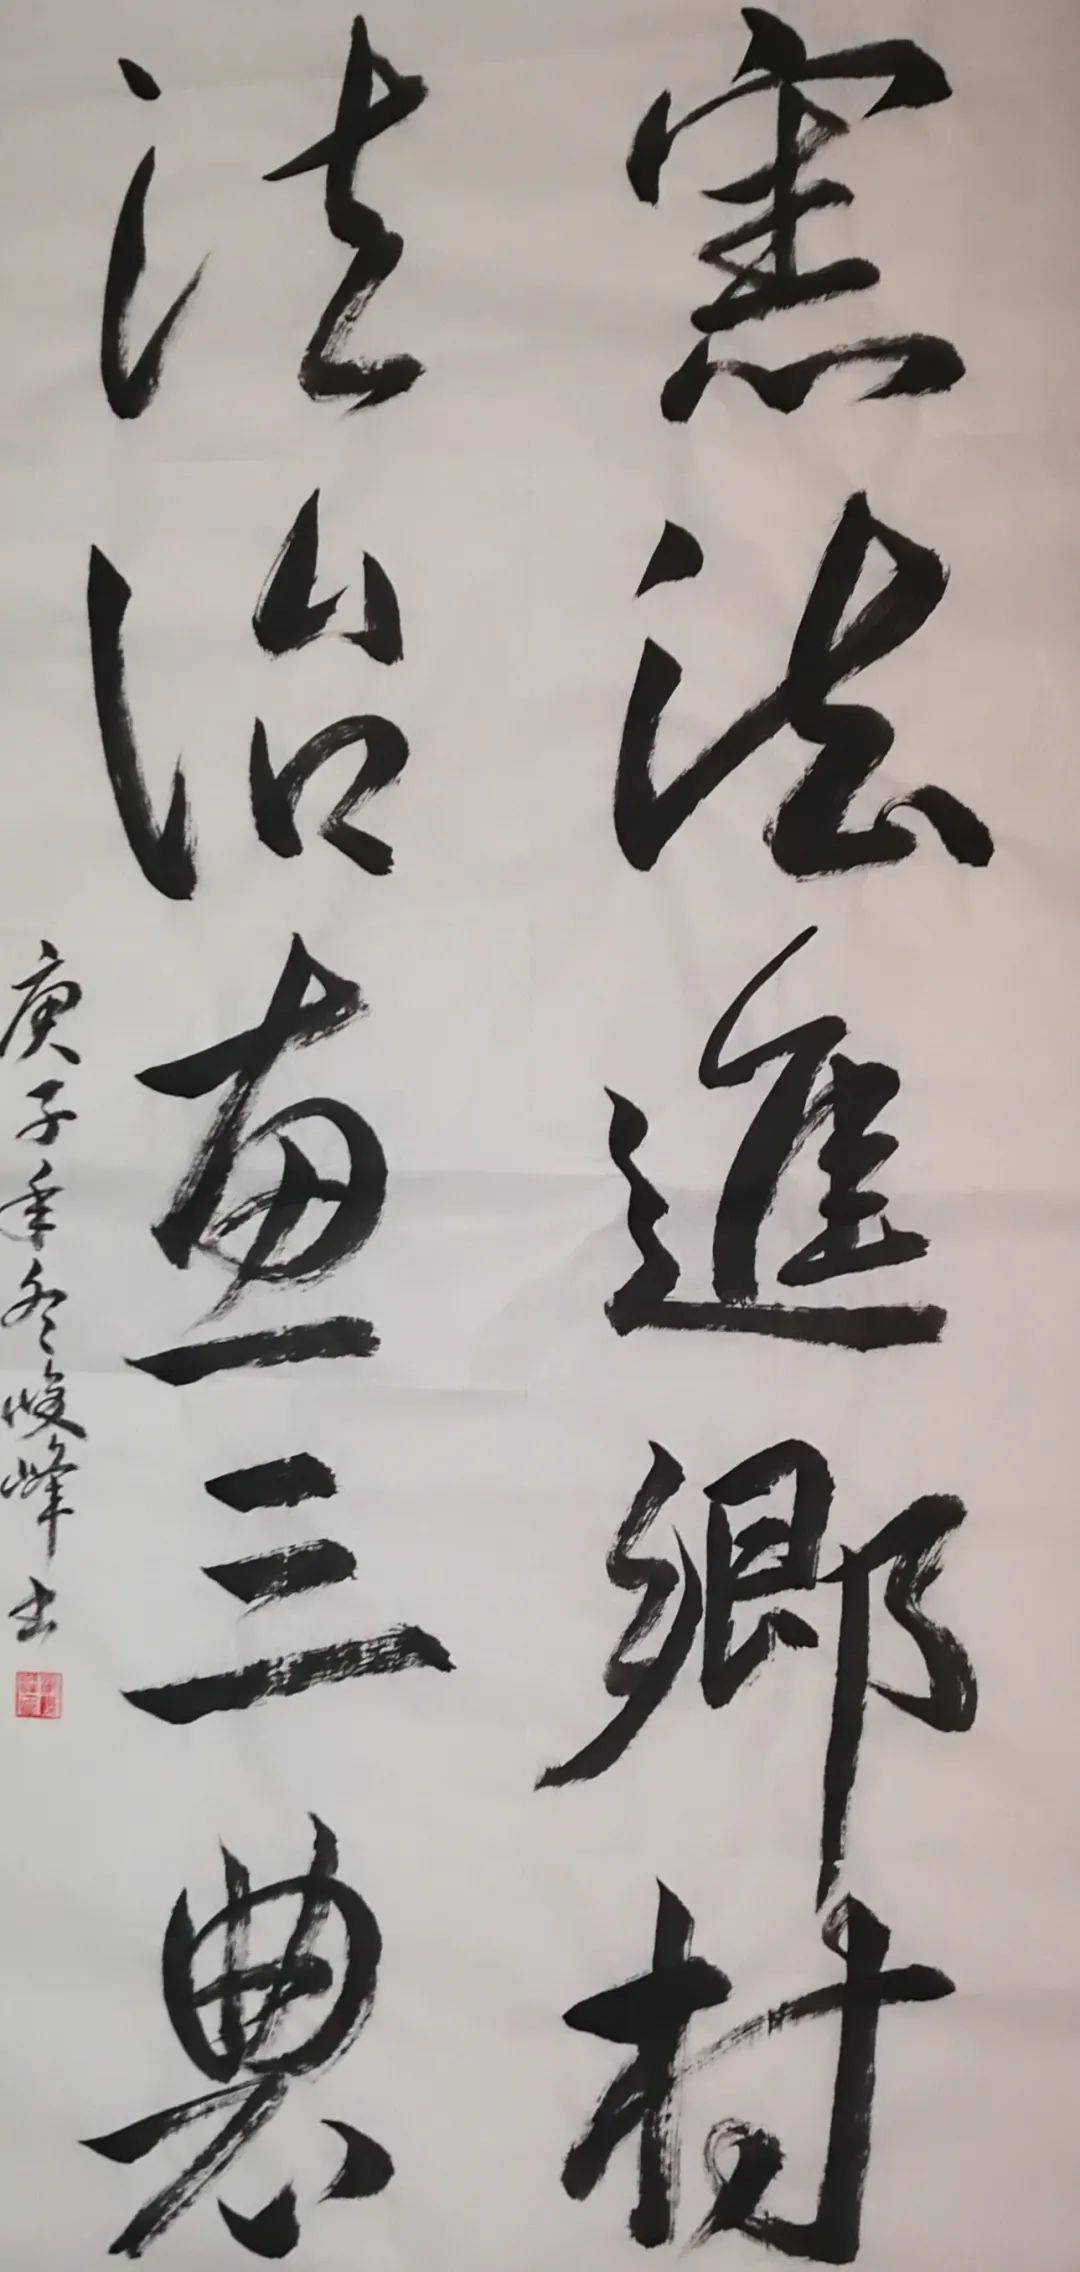 憲法進鄉村
法治画三典
庚子年冬峻峰书